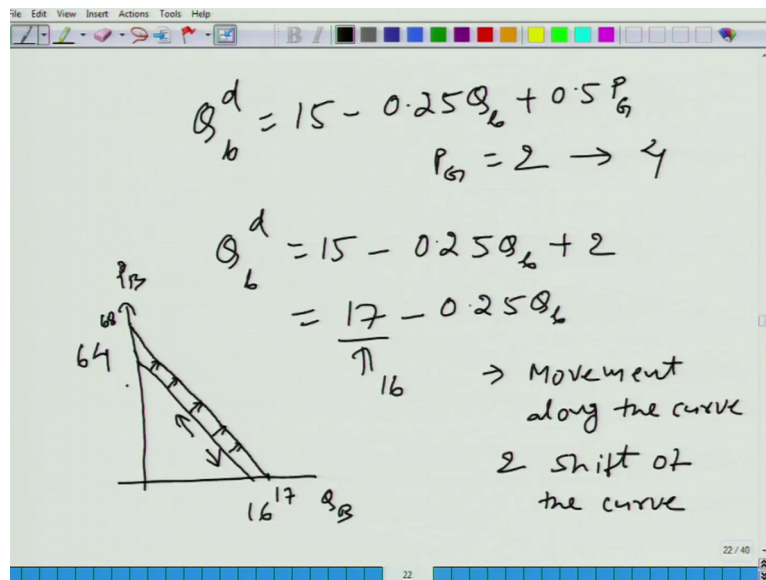 File Edit View Insert Actions Tools Help
B I
Q_b^d = 15 - 0.25Q_b + 0.5P_G
P_G = 2 → 4
Q_b^d = 15 - 0.25Q_b + 2
= 17 - 0.25Q_b
↑ 16
P_B
68
64
16 17 Q_B
→ Movement
along the curve
2 shift of
the curve
22 / 40
22